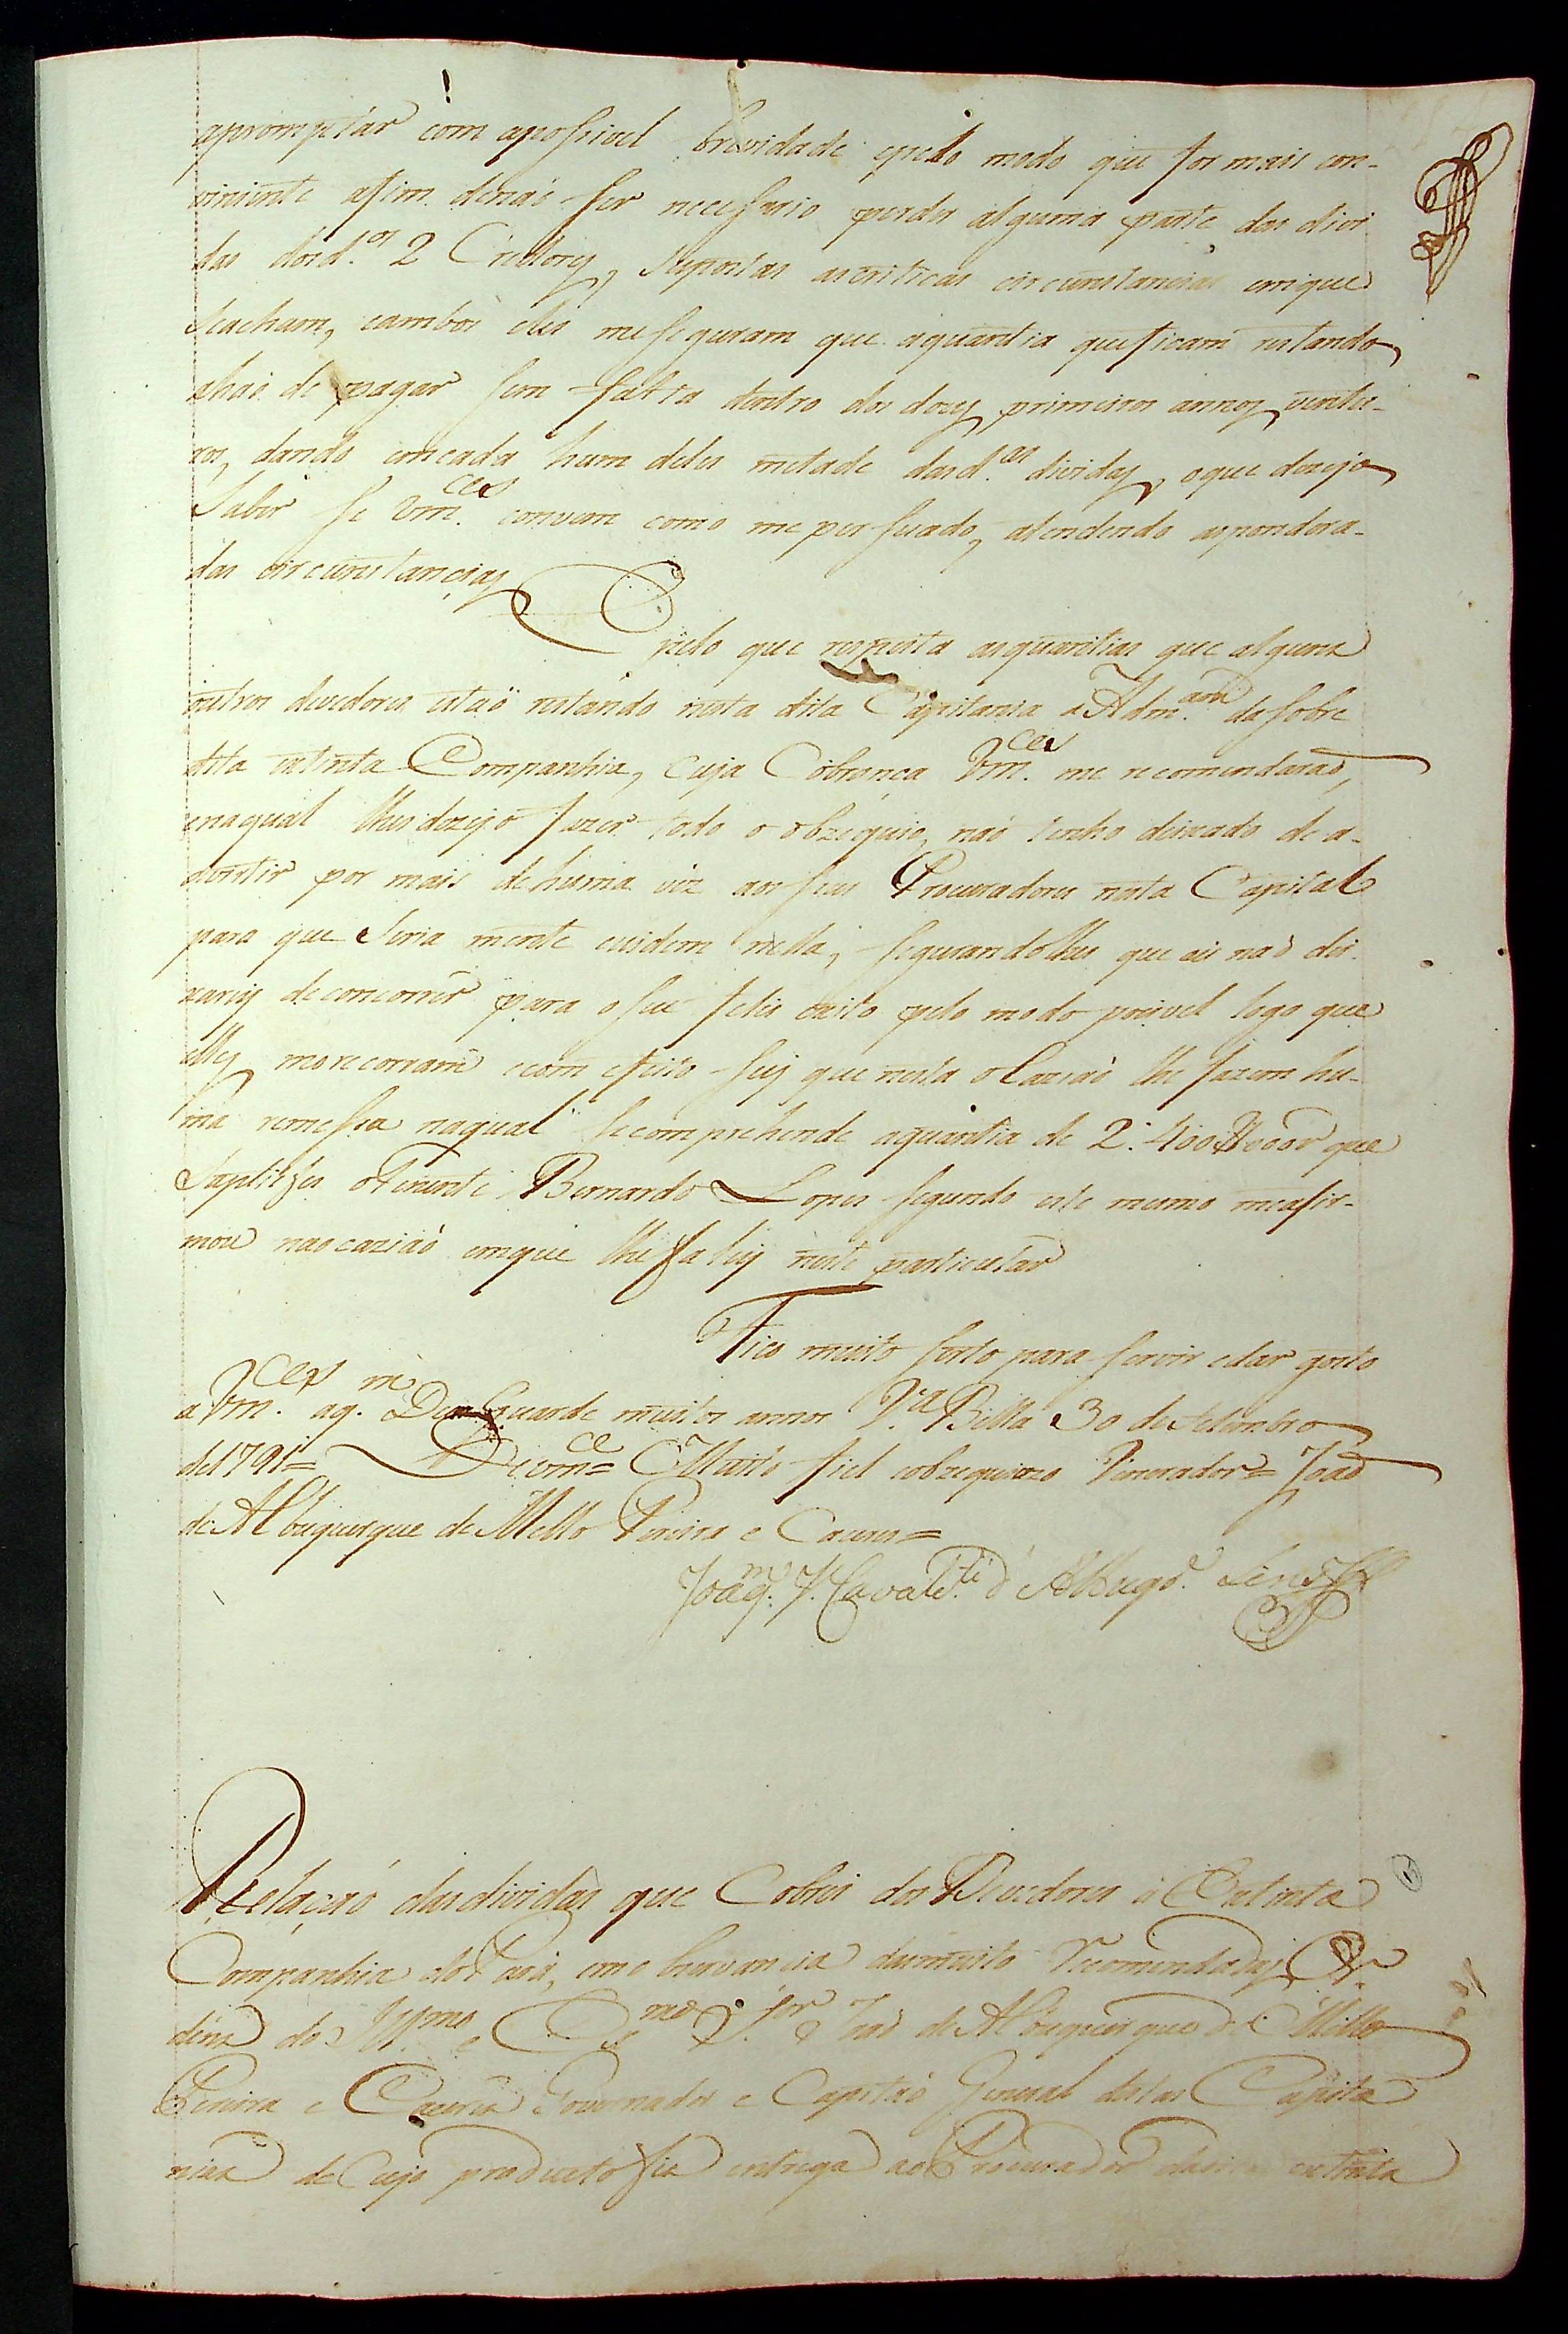 apromptár com aposivel brevidade epelo modo que for mais con-
viniente afim denaó ser necessario perder alguma parte das divi
das dosd.os 2 Credores, supostas ascriticas circunstancias emque
seacham, eambos eles mesiguram que aquantia queficam restando,
ahaó de pagar sem falta dentro dos dois primeiros annos vindou-
ros, dando emcada hum deles metade dasd.as dividas, oque dezejo
saber se Vm.ces convem como me persuado, atendendo asponderá-
das circunstancias
Epelo que respeita asquantias que alguns
outros devedores estaó restando nesta dita Capitania a Adm.am da sobre
dita extinta Companhia, cuja Cobrança Vm.ces me recomendaraó,
enaqual lhes dezejo fazer todo o obzequio, naó tenho deixado de a-
dvertir por mais de huma vez aos seus Procuradores nesta Capital
para que seria mente cuidem nella, segurandolhes que eu naó dei
xarey deconcorrer para o seu feliz exito pelo modo posivel logo que
elles merecorram ecom efeito sey que nesta ocaziaó lhe fazem hu-
ma remessa naqual secomprehende aquantia de 2:400$000r que
Saptisfes oTenente Bernardo Lopes segundo este mesmo meafir-
mou naocaziaó emque lhe faley neste particular
Fico muito serto para servir edar gosto
a Vm.ces aq.m Deos Guarde muitos annos V.a Bella 30 de Setembro
de1791= Devm.ce= Muito fiel eobzequiozo Venerador= Joaó
de Albuquerque de Mello Pereira e Caceres=
Joaq.m J. Cavalc.ti d'Albuq.e Lins
Relaçaó dasdividas que Cobrei dos Devedores á Extinta
Companhia do Pará, em o hervancia damuito Recomendadas Or
dens do Ill.mo e Ex.mo S.or Joaó de Albuquerque de Mello
Pereira e Caceres Governador e Capitaó General destas Capita
nias de Cujo producto fis entrega ao Procurador extinta